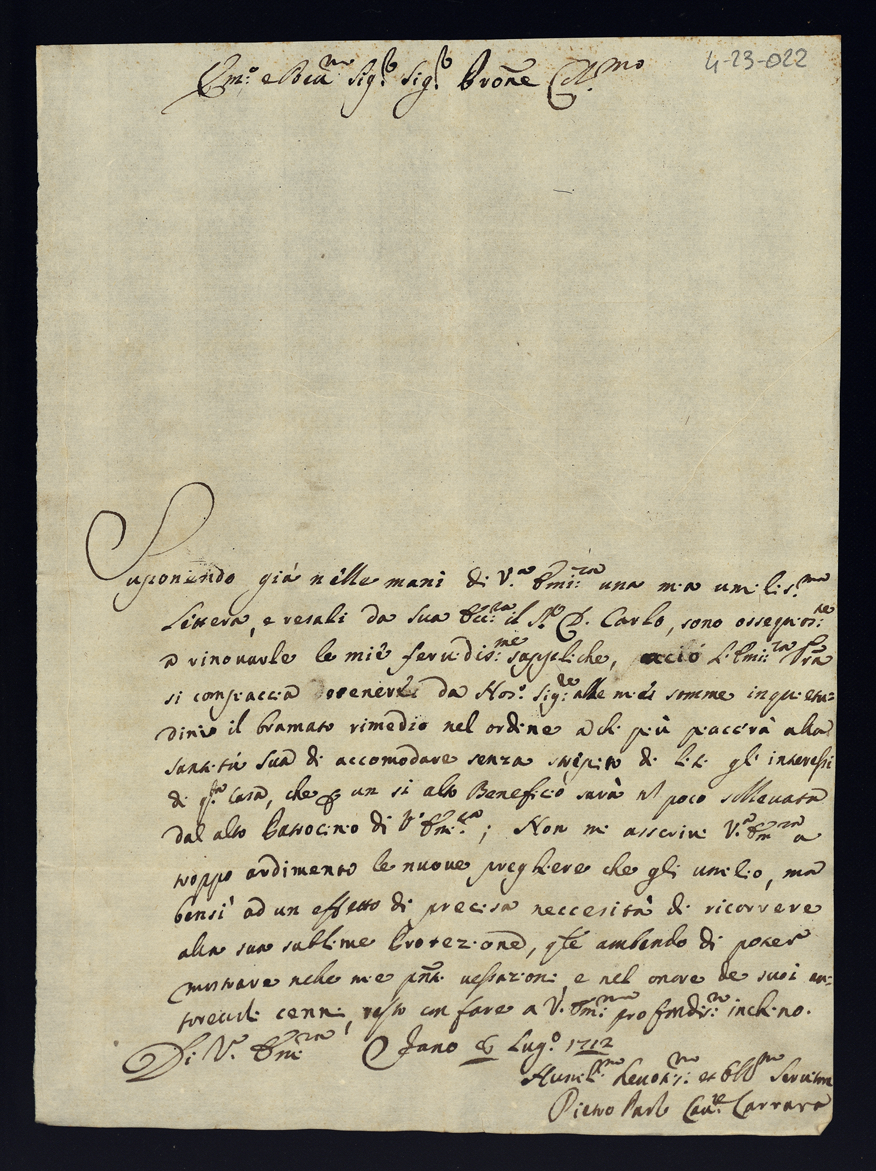 4-23-022
Em.o e Rev.mo Sig.r Sig.r Prone Col.mo
Suponendo già nelle mani di V.a Emi:za una mia umilis:ma
lettera, e resali da sua Ecc:za il S.r D. Carlo, sono
a rinovarle le mie fervidis:me suppliche, acciò l'Emi:za Vra
si compiaccia ottenerli da Nos.o Sig.re alle mie somme inquietu-
dini il bramato rimedio nel ordine a chi più piacerà alla
santità Sua di accomodare senza strepito di liti gli interessi
di q.ta Casa, che p un si alto Beneficio sarà nō poco sollevata
dal alto Patrocinio di V.a Em:za; Non mi asserive V.a Em:za a
troppo ardimento le nuove preghiere che gli umilio, ma
bensì ad un effetto di precisa neccesità di ricorrere
alla sua sublime Protezione, q.le ambendo di poter
mostrare nelle mie pñti vessazioni, e nel onore de suoi au-
torevoli cenni, resto con fare a V. Em:za profondis:mo inchino.
Di V.a Em:za Fano 6 Lug.o 1712
Humil.mo Devotis:mo et Obb.mo Servitore
Pietro Paolo Cav.re Carrara